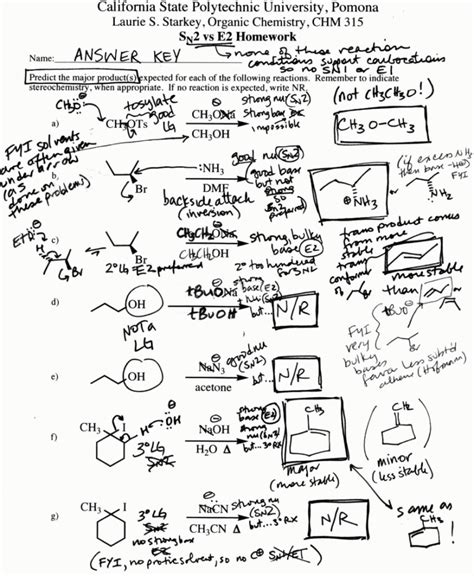 California State Polytechnic University, Pomona
Laurie S. Starkey, Organic Chemistry, CHM 315
SN2 vs E2 Homework
Name: ANSWER KEY
none of these reaction
conditions support carbocations
so no SN1 or E1
Predict the major product(s) expected for each of the following reactions. Remember to indicate
stereochemistry, when appropriate. If no reaction is expected, write NR.
(not CH3CH3O!)
CH3O⊖
tosylate
good LG
strong nu (SN2)
strong base
impossible
a) CH3OTs
CH3ONa
CH3OH
CH3O-CH3
FYI solvents
are often given
under arrow
(as
done on
these problems)
b)
Br
:NH3
DMF
good nu (SN2)
good base
but not
strong
so
SN2
preferred
backside attach
(inversion)
⊕NH3
(if excess NH3
then base -H⊕)
FYI
NH2
EtO⊖
H
c)
Br
CH3CH2ONa
CH3CH2OH
strong bulky
base E2
2° LG E2 preferred
2° too hindered
for SN2
trans product comes
from more
stable
trans
conformer
more stable
than
d)
OH
NOT a
LG
tBuONa
tBuOH
strong
base (E2)
but...
N/R
tBuO⊖
Br
FYI
very
bulky
bases
favor less subst'd
alkene (Hofmann)
e)
OH
NaN3
acetone
good nu
(SN2)
but...
N/R
f)
CH3 I
H
⊖OH
3° LG
NaOH
H2O Δ
strong
base (E2)
strong
nu (SN2)
but...3° RX
CH3
major
(more stable)
CH2
minor
(less stable)
g)
CH3 I
3° LG
no strong base
NaCN
CH3CN Δ
strong nu
(SN2)
but...3° RX
N/R
same as
CH3
!
(FYI, no protic solvent, so no C⊕ SN1/E1)